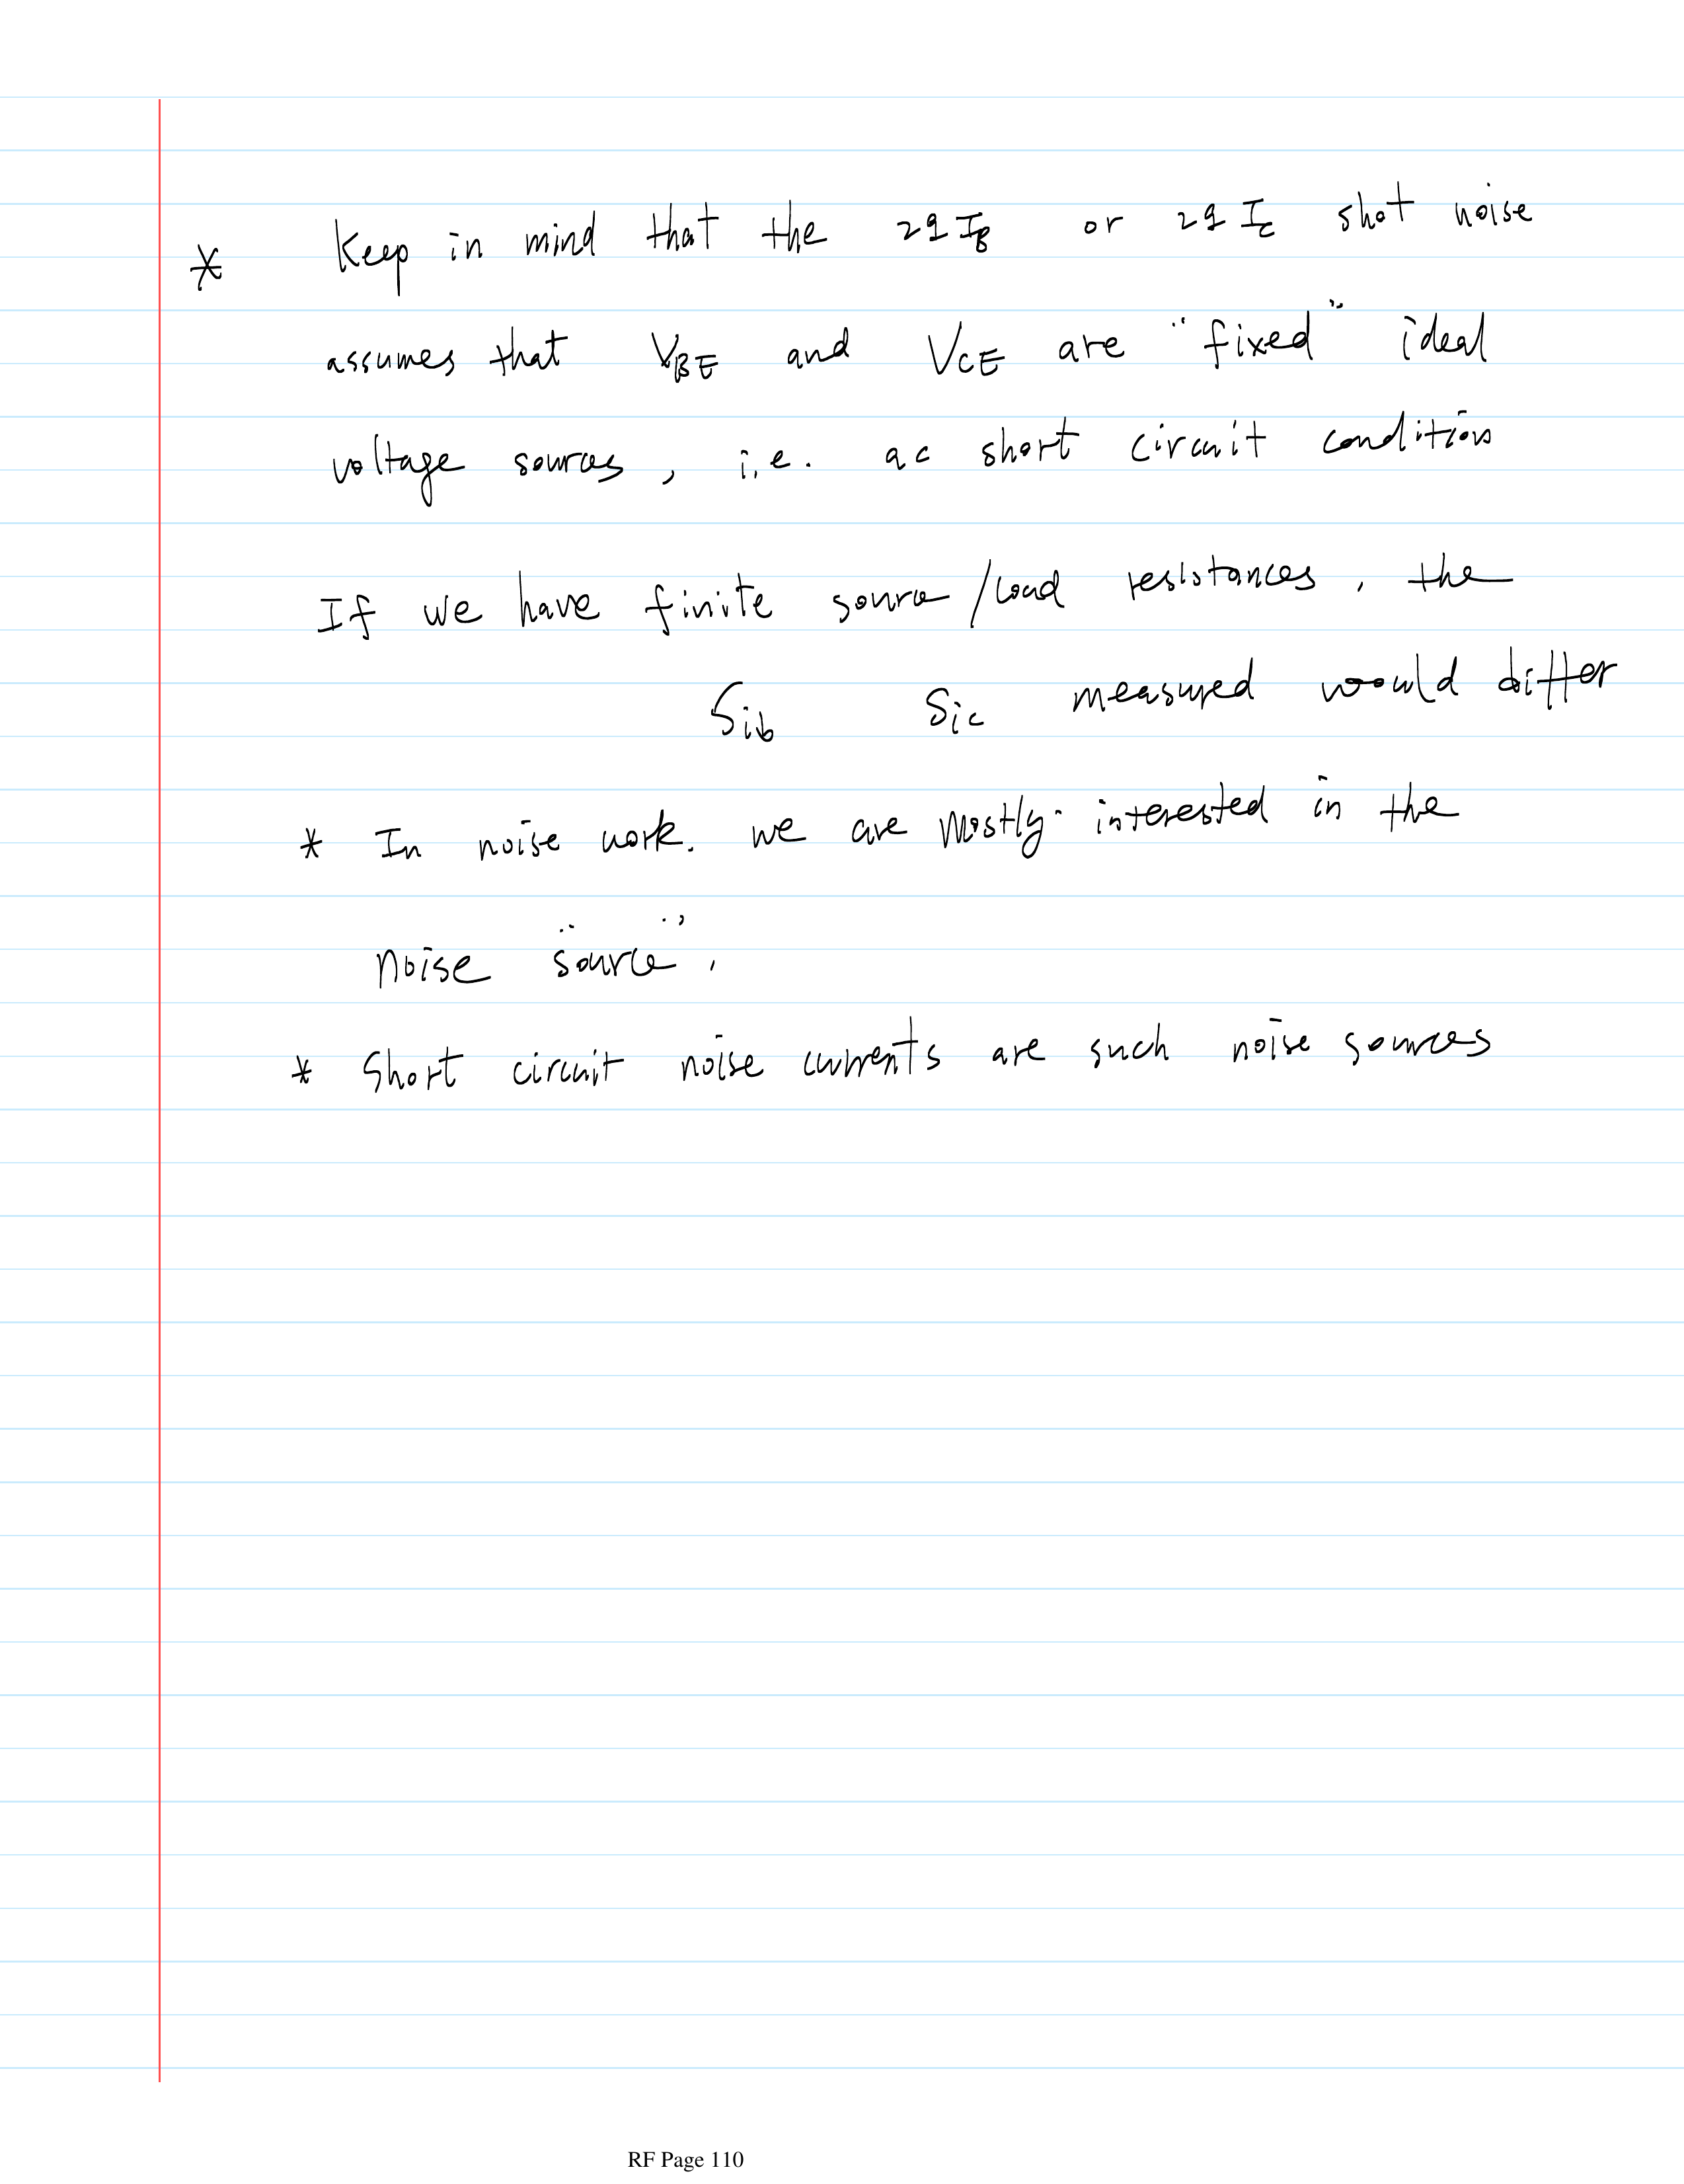 * Keep in mind that the 2qI_B or 2qI_C shot noise
assumes that V_BE and V_CE are "fixed" ideal
voltage sources, i.e. ac short circuit condition
If we have finite source/load resistances, the
S_ib S_ic measured would differ
* In noise work. we are mostly interested in the
noise "source".
* Short circuit noise currents are such noise sources
RF Page 110